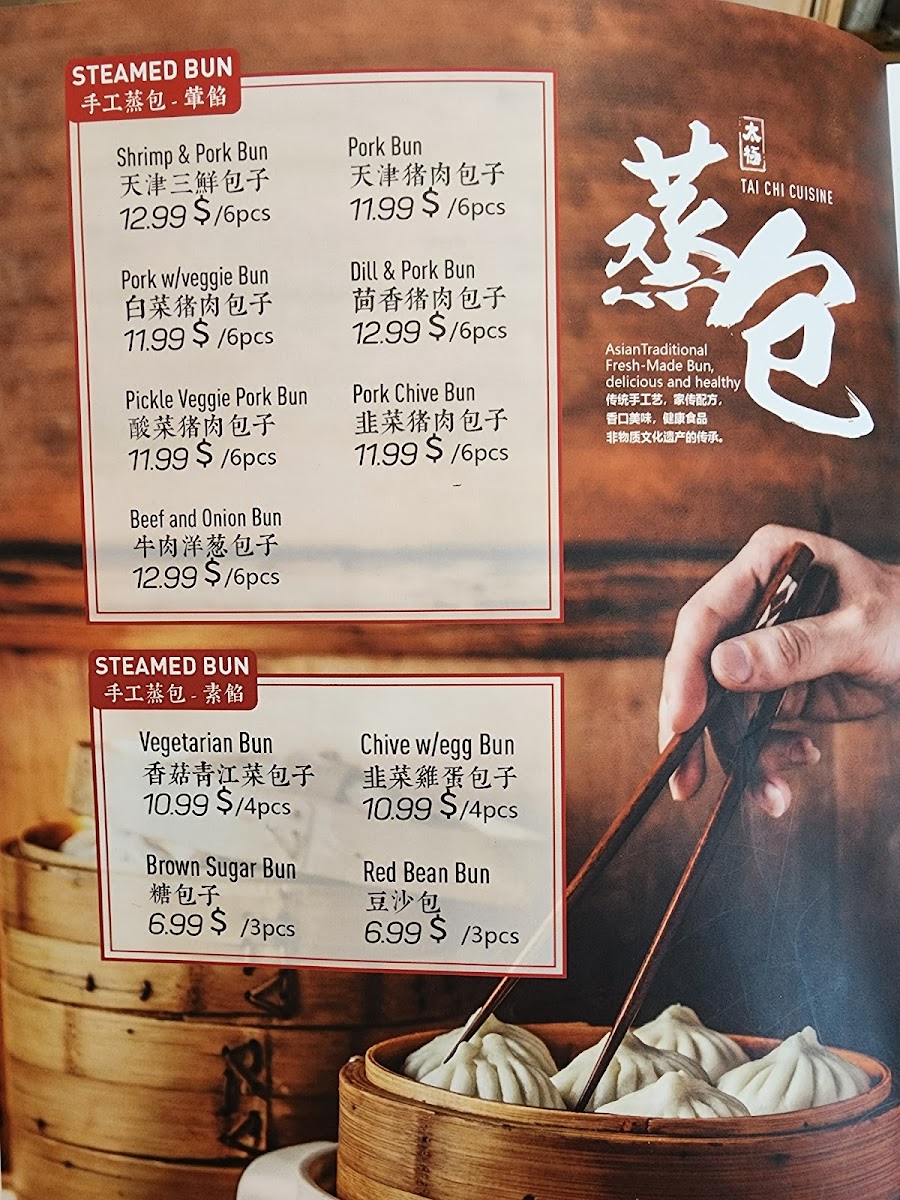 STEAMED BUN
手工蒸包 - 葷餡
Shrimp & Pork Bun
天津三鮮包子
12.99 $/6pcs
Pork Bun
天津猪肉包子
11.99 $ /6pcs
Pork w/veggie Bun
白菜猪肉包子
11.99 $ /6pcs
Dill & Pork Bun
茴香猪肉包子
12.99 $/6pcs
Pickle Veggie Pork Bun
酸菜猪肉包子
11.99 $ /6pcs
Pork Chive Bun
韭菜猪肉包子
11.99 $ /6pcs
Beef and Onion Bun
牛肉洋葱包子
12.99 $/6pcs
蒸包
太極
TAI CHI CUISINE
AsianTraditional
Fresh-Made Bun,
delicious and healthy
传统手工艺，家传配方，
香口美味，健康食品
非物质文化遗产的传承。
STEAMED BUN
手工蒸包 - 素餡
Vegetarian Bun
香菇青江菜包子
10.99 $/4pcs
Chive w/egg Bun
韭菜雞蛋包子
10.99 $/4pcs
Brown Sugar Bun
糖包子
6.99 $ /3pcs
Red Bean Bun
豆沙包
6.99 $ /3pcs